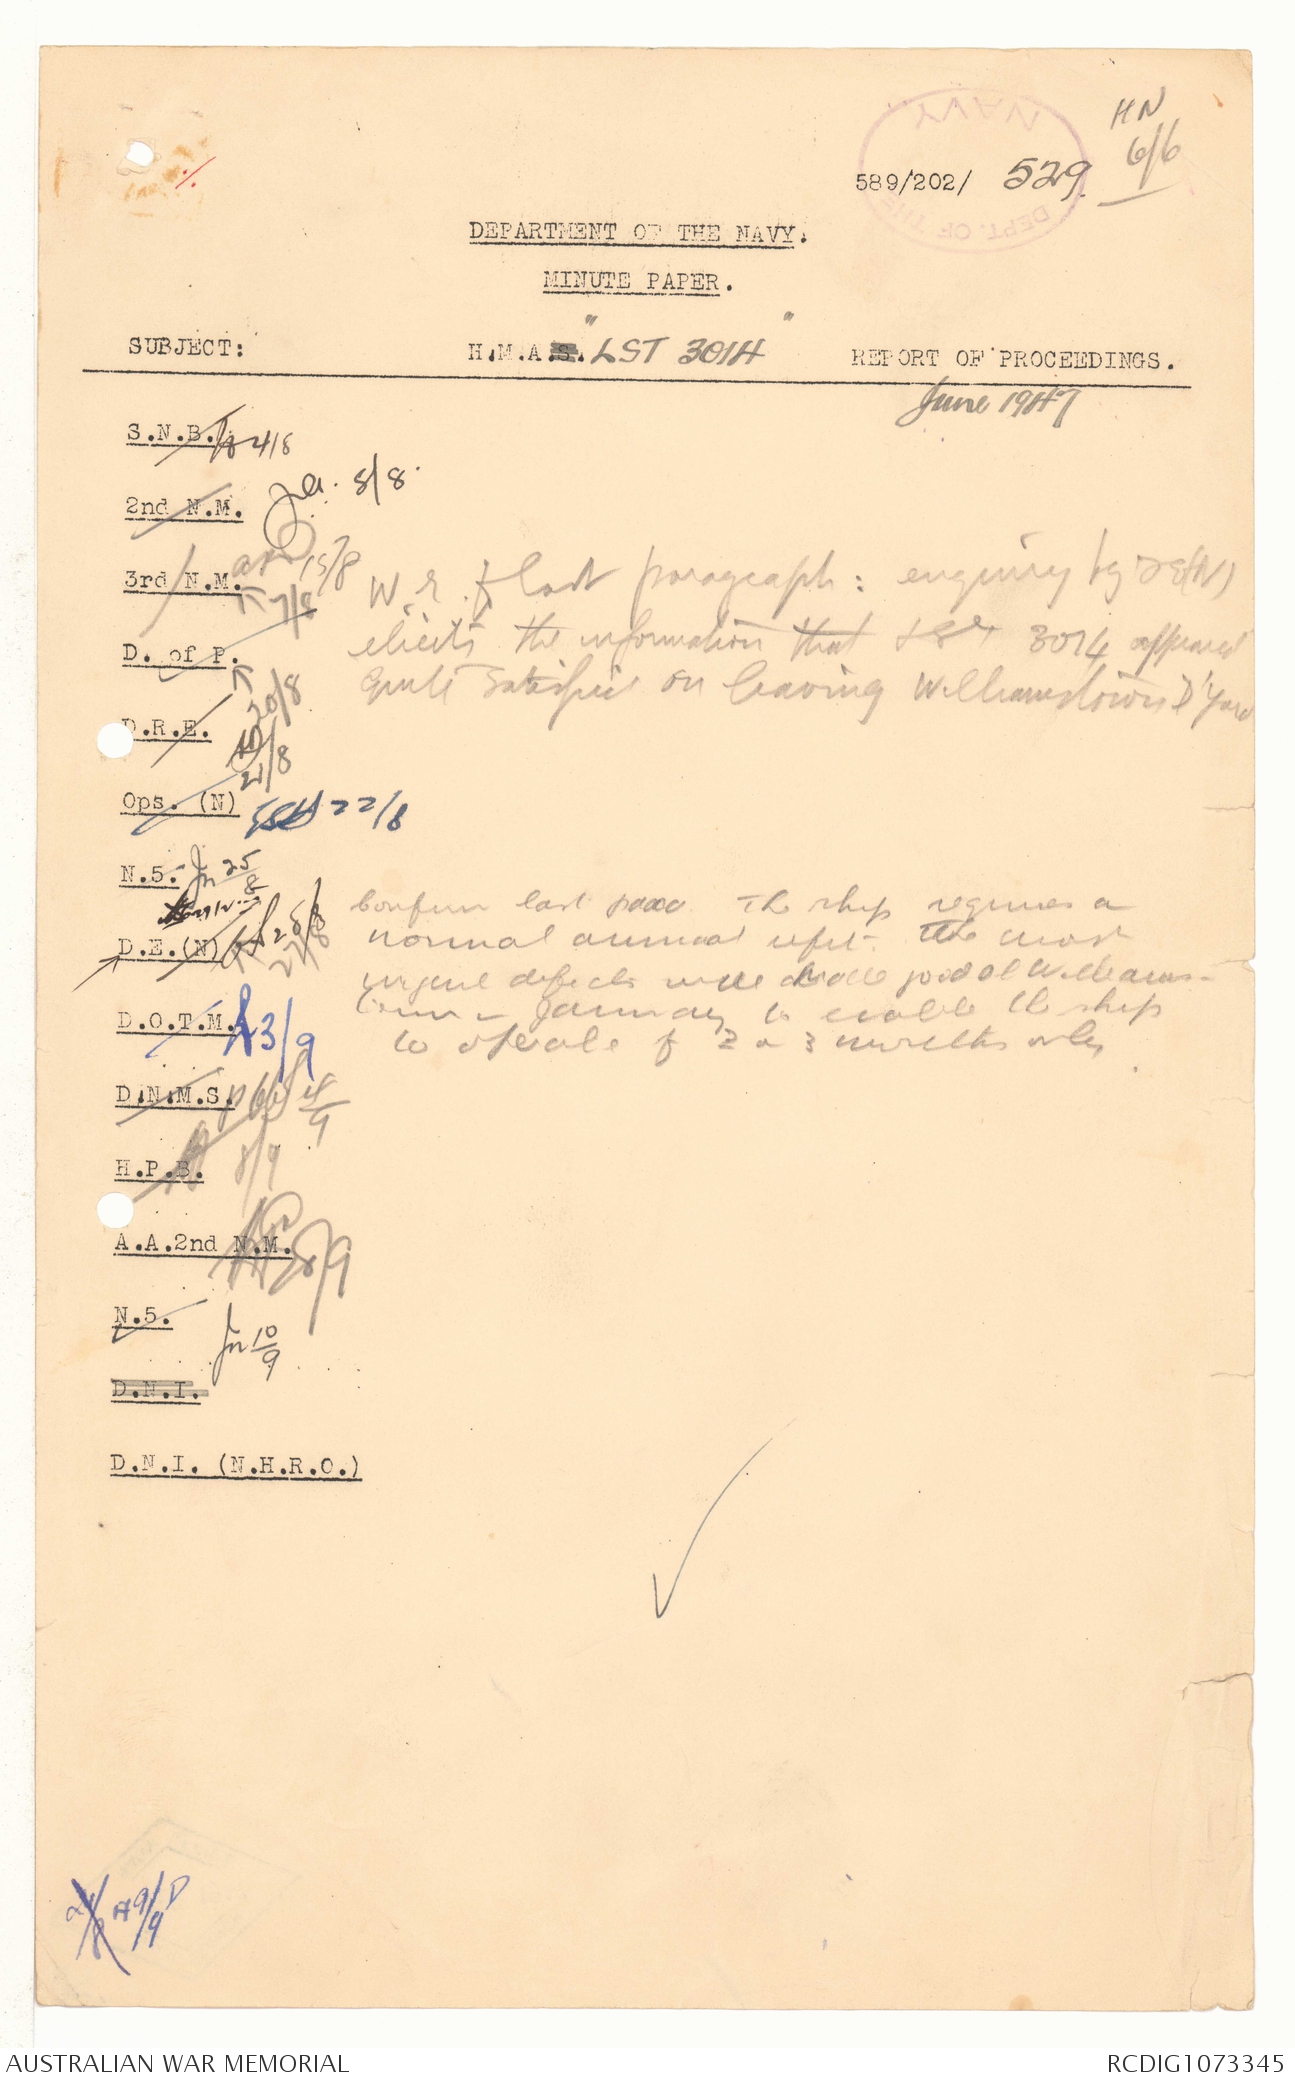 HN
6/6
NAVY
DEPT. OF THE
589/202/ 529.
DEPARTMENT OF THE NAVY.
MINUTE PAPER.
SUBJECT: H.M.A.S. "LST 3014" REPORT OF PROCEEDINGS.
June 1947
S.N.B. 4/8
2nd N.M. 8/8
3rd N.M. 15/8
7/8
W.r.t last paragraph: enquiry by DE(N)
elicits the information that LST 3014 appeared
quite on leaving Williamstown D'Yard
D. of P.
20/8
D.R.E.
21/8
Ops. (N) 22/8
N.5. 25/8
Confirm last para. The ship requires a
D.E.(N) 28/8
27/8
normal annual refit. The most
urgent defects were made good at Williams-
town in January to enable the ship
to operate for 2 or 3 months only.
D.O.T.M. 3/9
D.N.M.S. 4/9
H.P.B. 8/9
A.A.2nd N.M. 8/9
N.5. 10/9
D.N.I.
D.N.I. (N.H.R.O.)
9/9
AUSTRALIAN WAR MEMORIAL RCDIG1073345